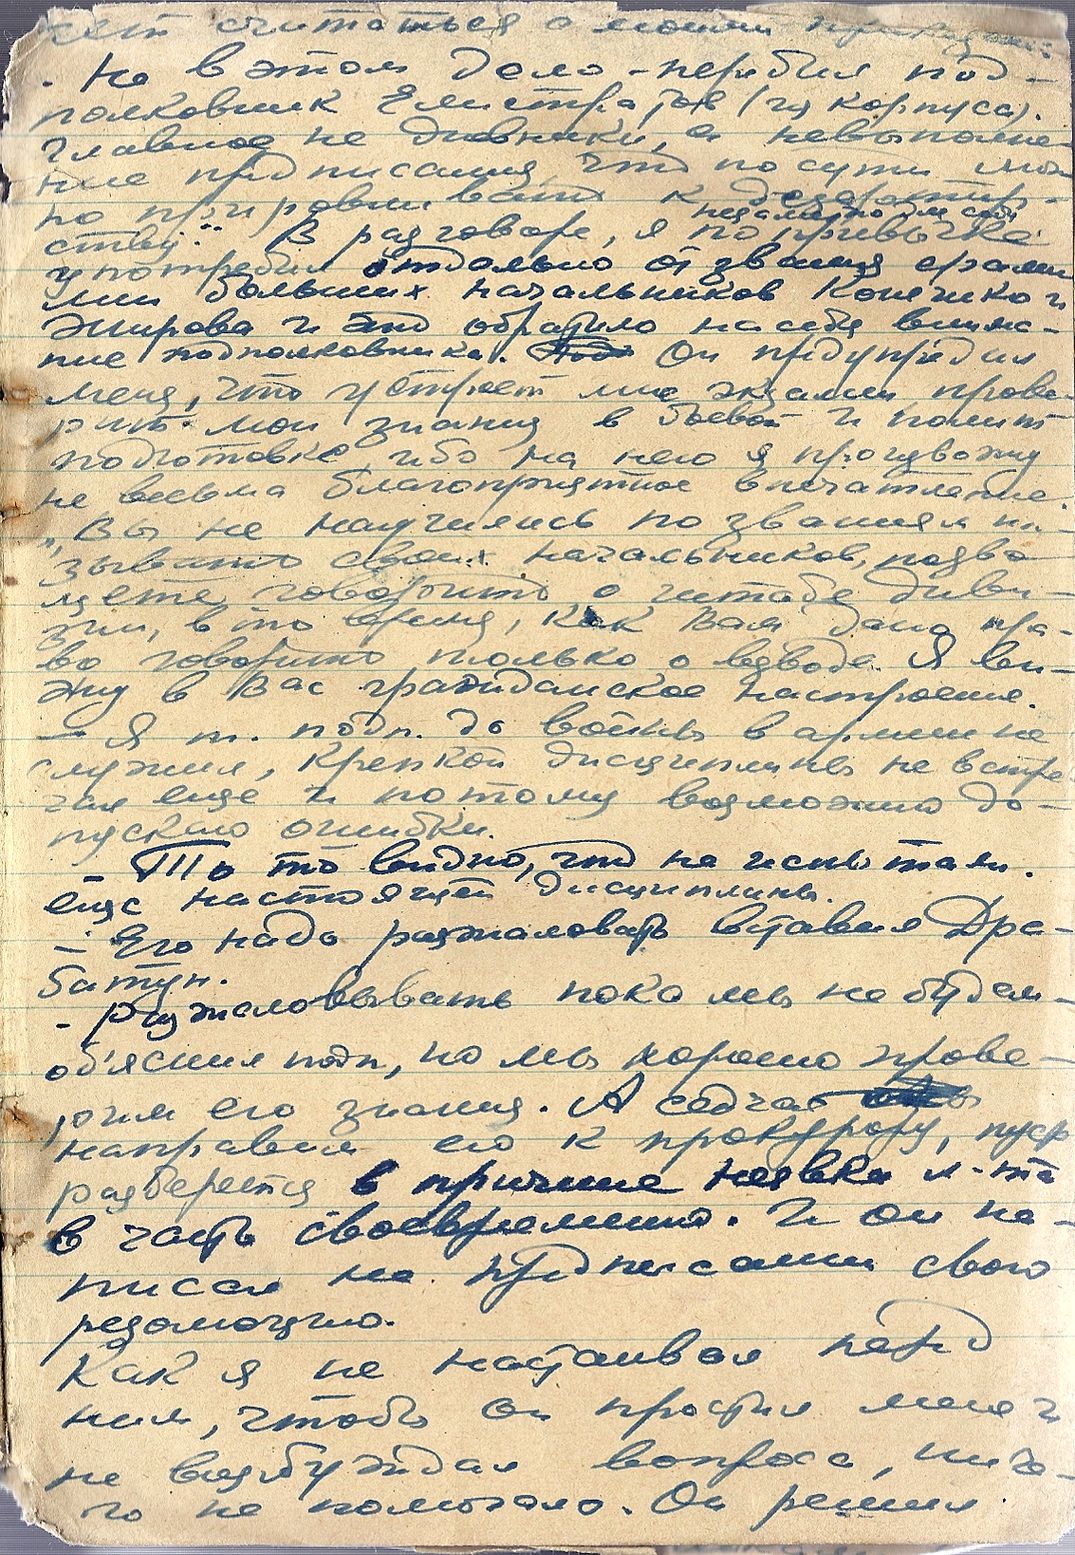 считаться с моими приказами.
- Не в этом дело, - перебил под-
полковник Елистратов (из корпуса).
главное не дневники, а невыполне-
ние предписания, что по сути можно
приравнивать к дезертир-
ству." В разговоре, я по привычке
незаметно для себя
употребил отдельно от звания фами-
лии больших начальников
Жирова и это обратило на себя внима-
ние подполковника. Он предупредил
меня, что устроет мне экзамен прове-
рить мои знания в боевой и полит
подготовке, ибо на него я произвожу
не весьма благоприятное впечатление.
"Вы не научились по званиям на-
зывать своих начальников, позво-
ляете говорить о штабе диви-
зии, в то время, как Вам дано пра-
во говорить только о взводе. Я ви-
жу в Вас гражданское настроение.
- Я т. подп. до войны в армии не
служил, крепкой дисциплины не встре-
чал еще и потому возможно до-
пускаю ошибки.
- То то видно, что не испытали
еще настоящей дисциплины.
- Его надо разжаловать вставил Дра-
батун.
- Разжаловывать пока мы не будем -
об'яснил подп, но мы хорошо прове-
рим его знания. А сейчас
направим его к прокурору, пусть
разберется в причине неявки л-та
в часть своевременно. И он на-
писал на предписании свою
резолюцию.
Как я не настаивал перед
ним, чтобы он простил меня и
не возбуждал вопроса, ниче-
го не помогало. Он решил